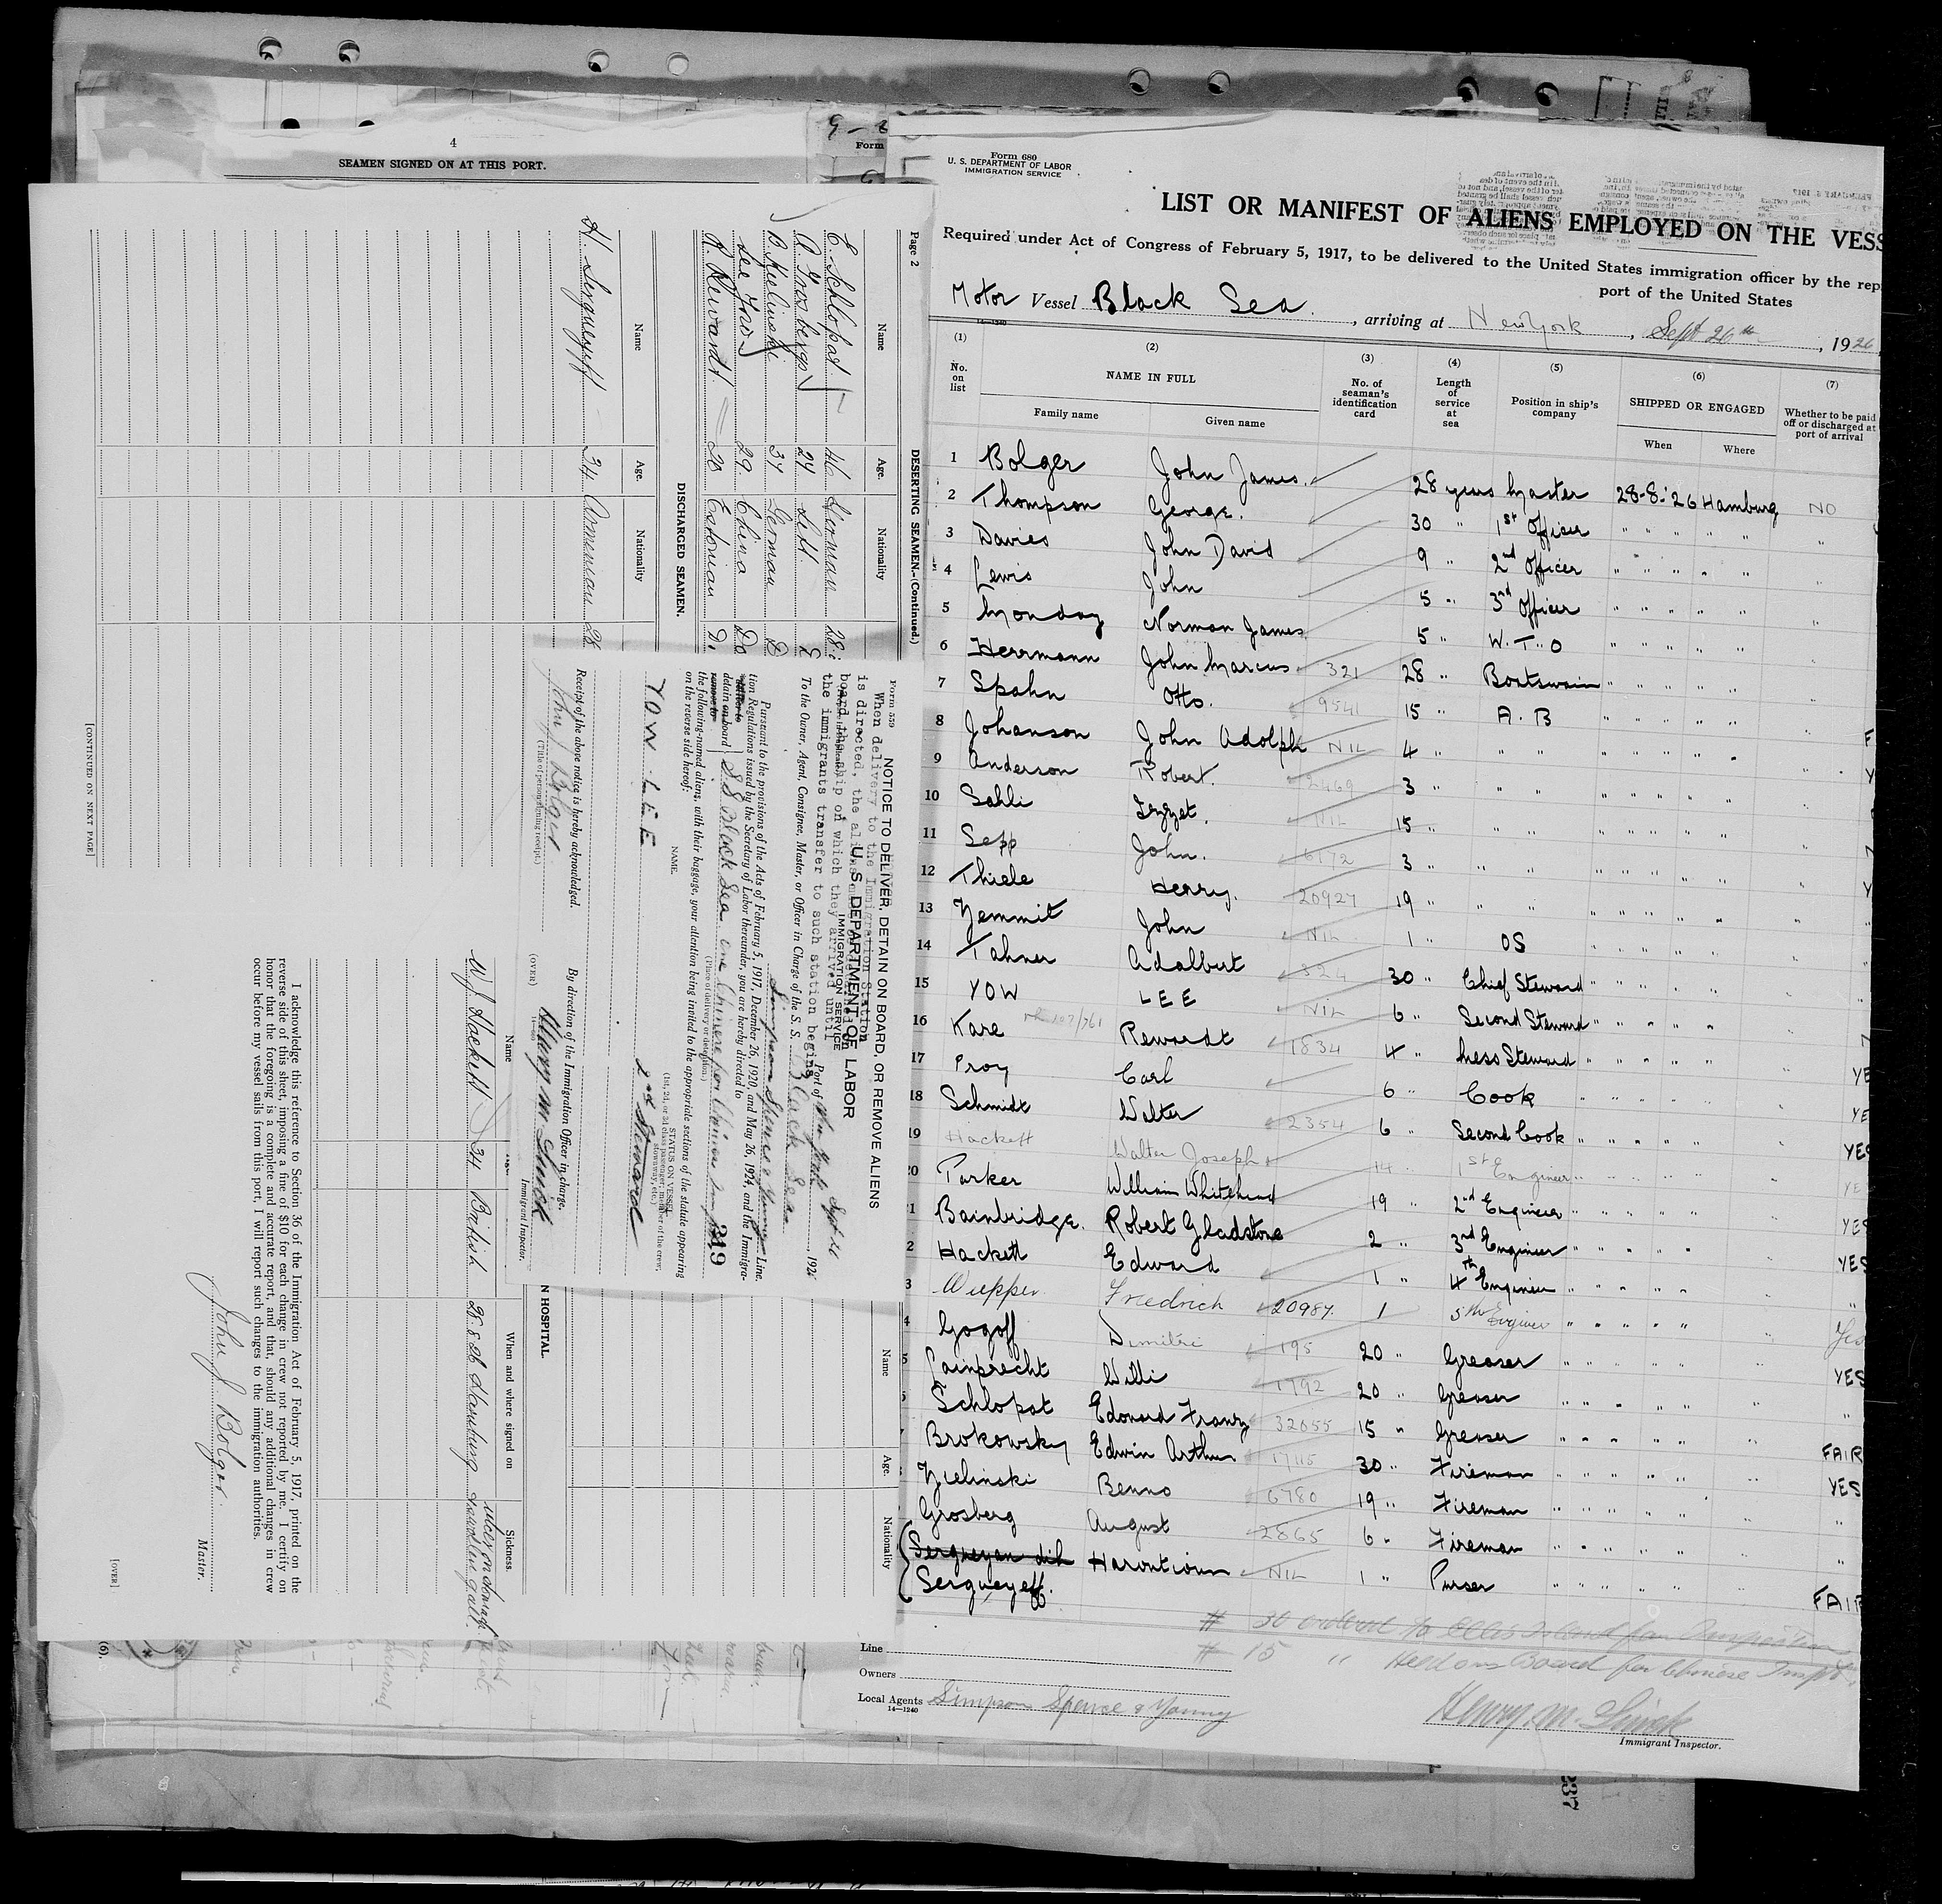 4
SEAMEN SIGNED ON AT THIS PORT.
Form
Form 680
U. S. DEPARTMENT OF LABOR
IMMIGRATION SERVICE
LIST OR MANIFEST OF ALIENS EMPLOYED ON THE VESS
Required under Act of Congress of February 5, 1917, to be delivered to the United States immigration officer by the rep
port of the United States
Motor Vessel Black Sea, arriving at New York, Sept 26th, 1926
(1) (2) (3) (4) (5) (6) (7)
No. on list NAME IN FULL No. of seaman's identification card Length of service at sea Position in ship's company SHIPPED OR ENGAGED Whether to be paid off or discharged at port of arrival
Family name Given name When Where
1 Bolger John James. 28 years Master 28-8-'26 Hamburg NO
2 Thompson George. 30 " 1st Officer " " " " "
3 Davies John David 9 " 2nd Officer " " " " "
4 Lewis John 5 " 3rd Officer " " " " "
5 Monday Norman James 5 " W.T.O " " " " "
6 Herrmann John Marcus 321 28 " Boatswain " " " " "
7 Spahn Otto. 9541 15 " A.B " " " " "
8 Johanson John Adolph NIL 4 " " " " " " "
9 Anderson Robert. 2469 3 " " " " " " "
10 Sahli Izzet. NIL 15 " " " " " " "
11 Sepp John. 6172 3 " " " " " " "
12 Thiele Henry. 20927 19 " " " " " " "
13 Yemmit John NIL 1 " OS " " " " "
14 Tahner Adalbert 324 30 " Chief Steward " " " " "
15 YOW LEE NIL 6 " Second Steward " " " " "
16 Kare Rewardt 1834 4 " Mess Steward " " " " "
17 Proy Carl 6 " Cook " " " " "
18 Schmidt Walter 2354 6 " Second Cook " " " " "
19 Hackett Walter Joseph 14 " 1st Engineer " " " " "
20 Parker William Whitehead 19 " 2nd Engineer " " " " " YES
1 Bainbridge. Robert Gladstone 2 " 3rd Engineer " " " " " YES
2 Hackett Edward 1 " 4th Engineer " " " "
3 Wupper Friedrich 20987. 1 5th Engineer " " " " "
4 Gogoff Dimitri 195 20 " Greaser " " " " "
5 Lainprecht Willi 1792 20 " Greaser " " " "
6 Schlopat Edouard Franz 32055 15 " Greaser " " " " "
7 Brokowsky Edwin Arthur 1745 30 " Fireman " " " " "
Zielinski Benno 6780 19 " Fireman " " " "
Grosberg August 2865 6 " Fireman " " " " "
Sergueyan dih Harontioun NIL 1 " Purser " " " " "
Sergueyeff.
# 30 ordered to Ellis Island for Inspection
# 15 " Held on Board for Chinese Inspt.
Line
Owners
Local Agents Simpson Spence & Young
14—1240
Henry M. Smick
Immigrant Inspector.
Page 2
DESERTING SEAMEN.—(Continued.)
Name Age. Nationality
E. Schlopat 46 German 28
A. Grosbergs 27 Lett.
B. Zielinski 37 German
Lee Yow 29 China Do
R. Rewardt 20 Estonian
DISCHARGED SEAMEN.
Name Age. Nationality
H. Sergueyeff 34 Armenian 28
[CONTINUED ON NEXT PAGE]
Form 559
NOTICE TO DELIVER, DETAIN ON BOARD, OR REMOVE ALIENS
When delivery to the Immigration Station
is directed, the aliens
board the ship on which they arrived until
the immigrants transfer to such station begins
U. S. DEPARTMENT OF LABOR
IMMIGRATION SERVICE
Port of New York Sept 26, 192
To the Owner, Agent, Consignee, Master, or Officer in Charge of the S. S. Black Sea
Simpson Spence & Young Line.
Pursuant to the provisions of the Acts of February 5, 1917, December 26, 1920, and May 26, 1924, and the Immigra-
tion Regulations issued by the Secretary of Labor thereunder, you are hereby directed to
detain on board S.S. Black Sea one Chinese for Chinese Insp
(Place of delivery or detention.)
the following-named aliens, with their baggage, your attention being invited to the appropriate sections of the statute appearing
on the reverse side hereof:
349
NAME. STATUS ON VESSEL
(1st, 2d, or 3d class passenger, member of the crew, stowaway, etc.)
YOW LEE 2nd Steward
By direction of the Immigration Officer in charge.
Henry M Smick
Immigrant Inspector.
Receipt of the above notice is hereby acknowledged.
John J Bolger
(Title of person signing receipt.)
(OVER)
N HOSPITAL.
Name When and where signed on Sickness.
W.J. Hackett 34 British 28.8.26 Hamburg
Name Age. Nationality
I acknowledge this reference to Section 36 of the Immigration Act of February 5, 1917, printed on the
reverse side of this sheet, imposing a fine of $10 for each change in crew not reported by me. I certify on
honor that the foregoing is a complete and accurate report, and that, should any additional changes in crew
occur before my vessel sails from this port, I will report such changes to the immigration authorities.
John J. Bolger.
Master.
[OVER]
(6).
237